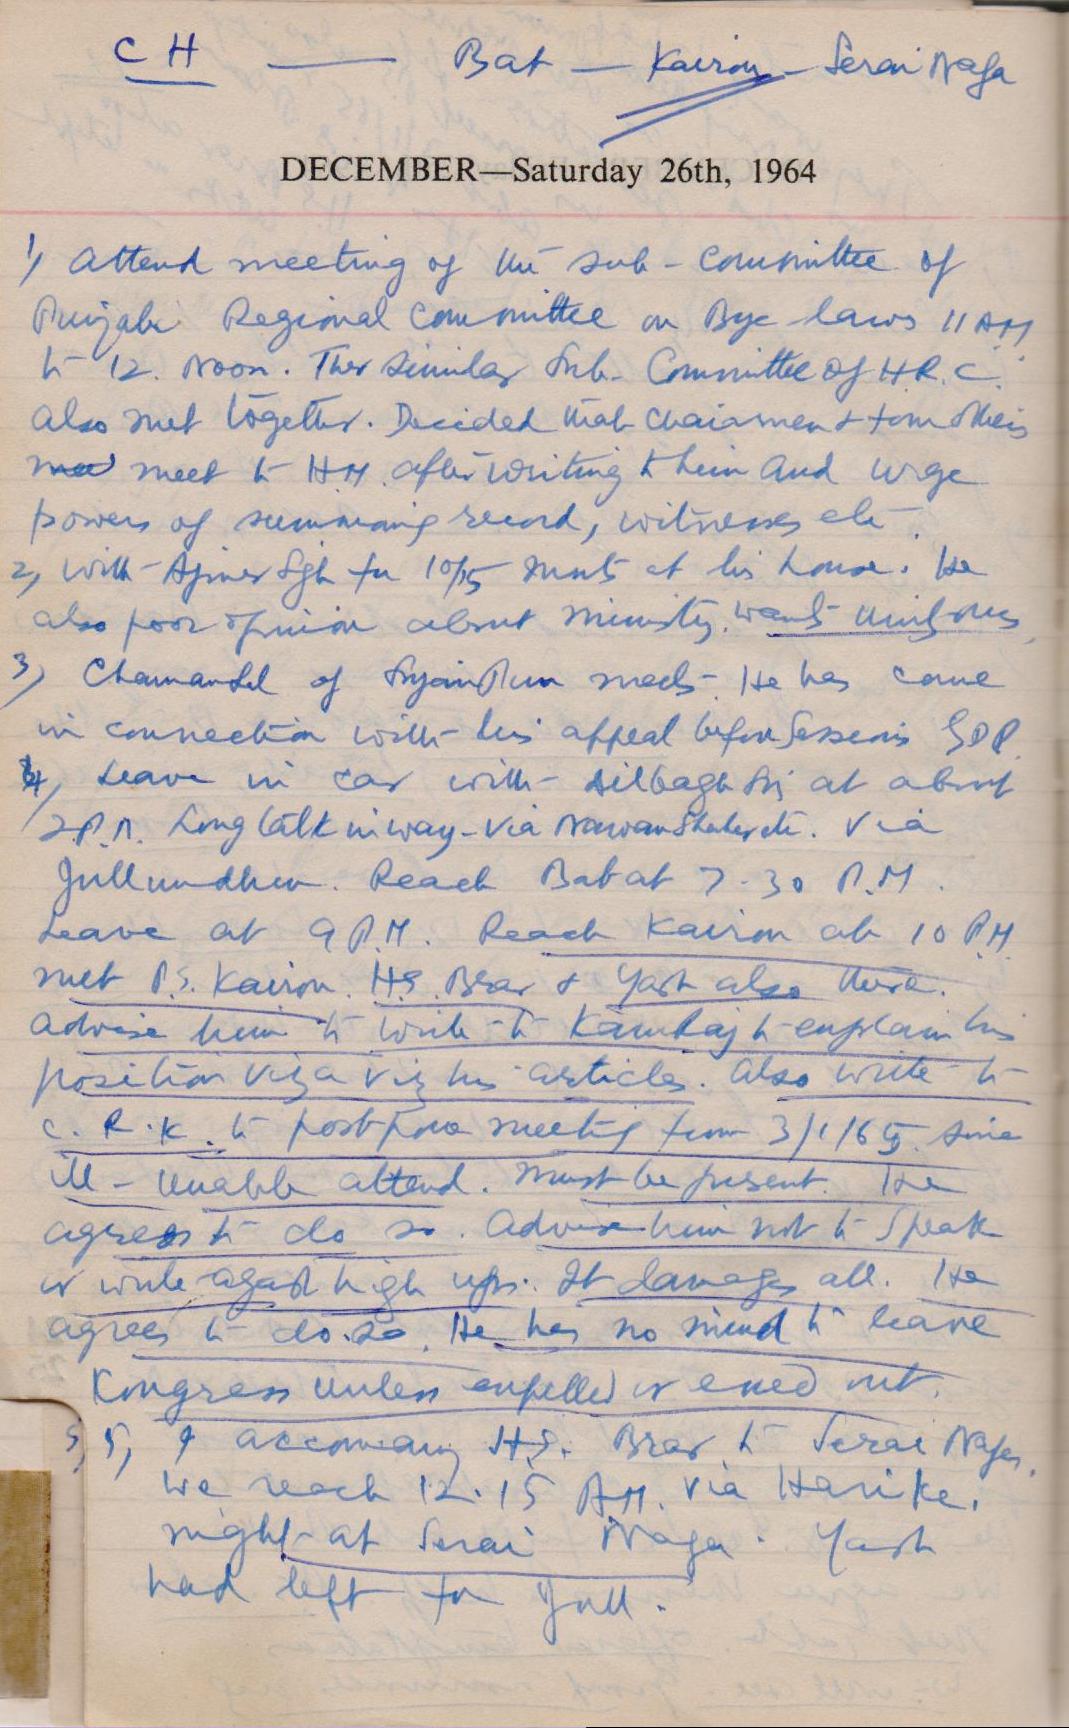 CH — Bat — Kairon - Serai Naga
DECEMBER—Saturday 26th, 1964
1, Attend meeting of the sub-committee of
Punjabi Regional Committee on Bye-laws 11 AM
to 12. Noon. The similar Sub-Committee of H.R.C.
also met together. Decided that Chairmen & four others
meet to H.M. after writing to him and urge
powers of summoning record, witnesses etc
2, with Ajmer Sgh for 10/15 mnts at his house. He
also poor opinion about ministry. wants
3, Chamanlal of meets. He has come
in connection with his appeal before Sessions GDP.
4, Leave in car with Dilbagh Sgh at about
2.P.M. Long talk in way - via Nawanshahr etc. via
Jullundhur. Reach Bat at 7-30 P.M.
Leave at 9 P.M. Reach Kairon at 10 P.M.
met P.S. Kairon. H.S. Brar & Yash also there.
Advise him to write to Kamraj to explain his
position viz a viz his articles. Also write to
C. R. K. to postpone meeting from 3/1/65 since
ill - unable attend. Must be present. He
agrees to do so. Advise him not to speak
or write agast high ups. It damages all. He
agrees to do so. He has no mind to leave
Kongress unless expelled or out.
5, 5, I accompany H.S. Brar to Serai Naga.
we reach 12.15 A.M. via Harike.
night at Serai Naga. Yash
had left for Jull.